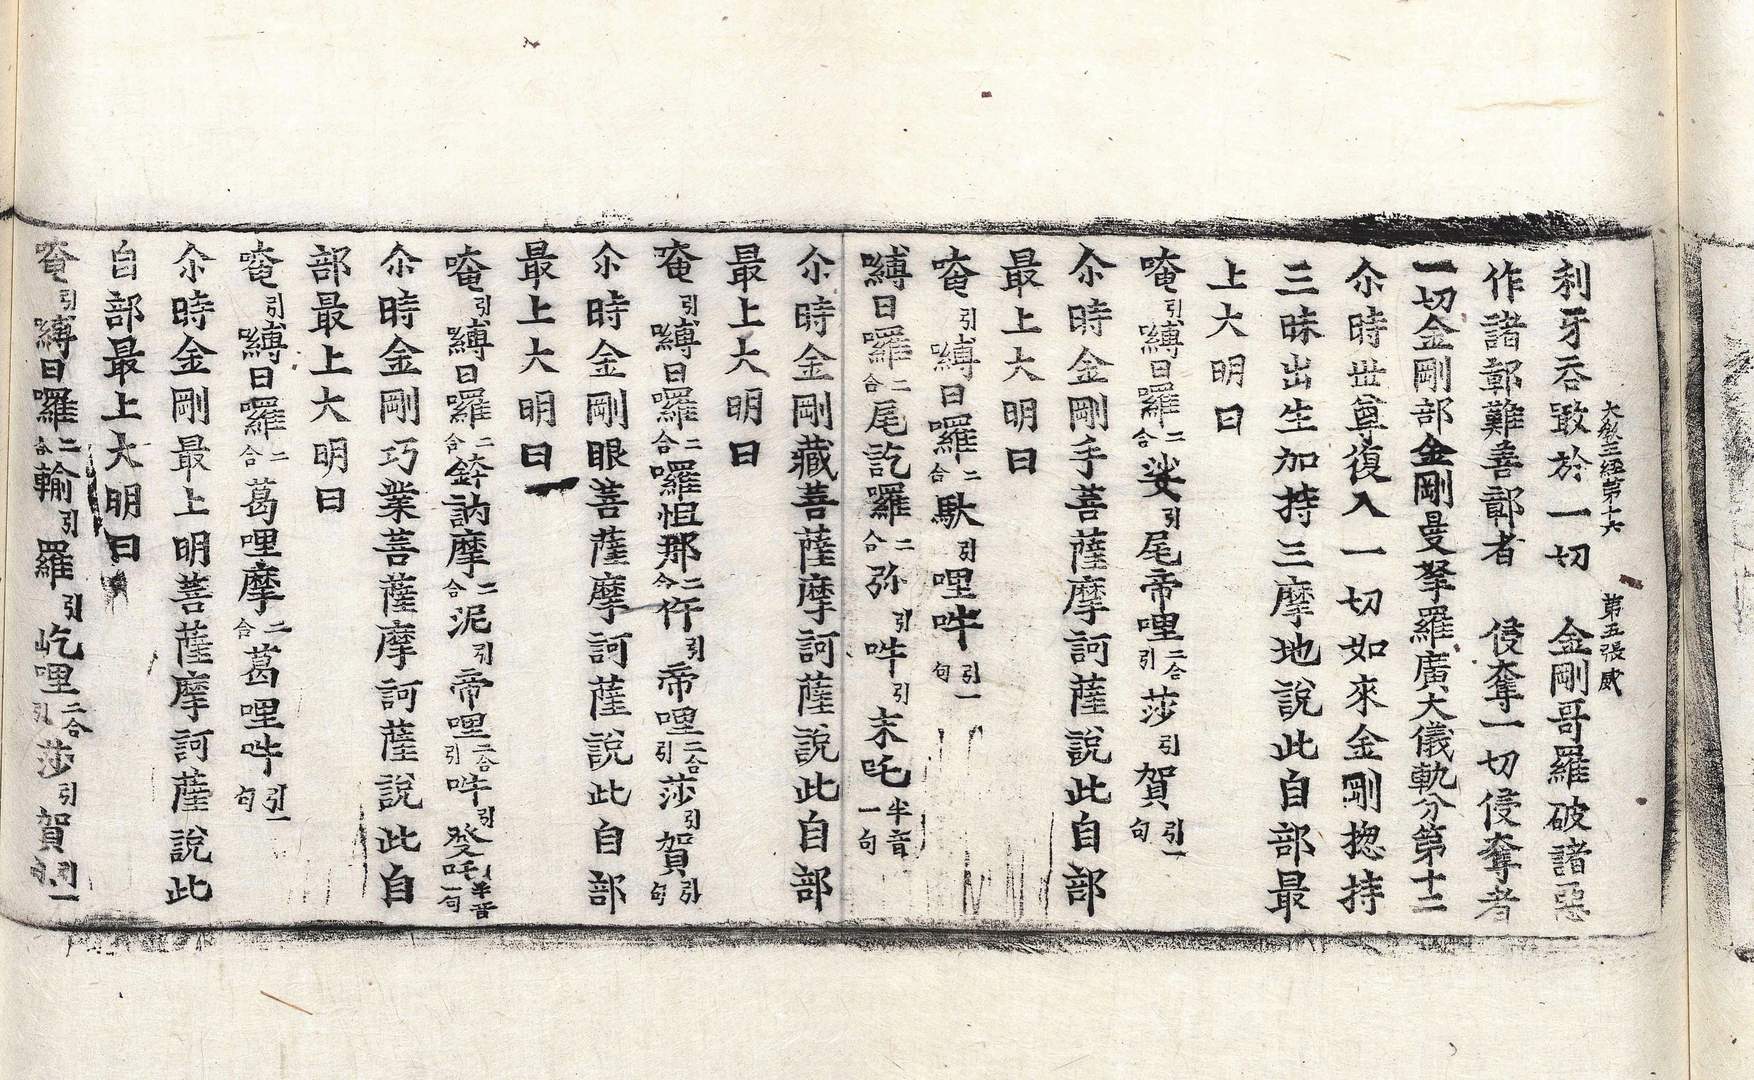 大教王經第十六 第五張 威
利牙吞噉於一切 金剛哥羅破諸惡
作諸鄣難善鄣者 侵奪一切侵奪者
一切金剛部金剛曼拏羅廣大儀軌分第十二
尒時世尊復入一切如來金剛揔持
三昧出生加持三摩地說此自部最
上大明曰
唵引嚩日囉二合娑引尾帝哩二合引莎引賀引一句
尒時金剛手菩薩摩訶薩說此自部
最上大明曰
唵引嚩日囉二合馱引哩吽引一句
嚩日囉二合尾訖囉二合弥引吽引末吒半音一句
尒時金剛藏菩薩摩訶薩說此自部
最上大明曰
唵引嚩日囉二合囉怛那二合仵引帝哩二合引莎引賀引句
尒時金剛眼菩薩摩訶薩說此自部
最上大明曰
唵引嚩日囉二合鉢訥摩二合泥引帝哩二合引吽引癹吒半音一句
尒時金剛巧業菩薩摩訶薩說此自
部最上大明曰
唵引嚩日囉二合葛哩摩二合葛哩吽引一句
尒時金剛最上明菩薩摩訶薩說此
自部最上大明曰
唵引嚩日囉二合輸引羅引屹哩二合引莎引賀引一句